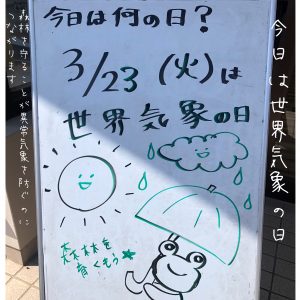 今日は何の日?
3/23 (火)は
世界気象の日
森林を
育くもう
今日は世界気象の日
森林を守ることが異常気象を防ぐのに
つながります